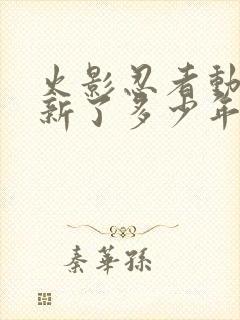 火影忍者動
新了多少年
秦華孫